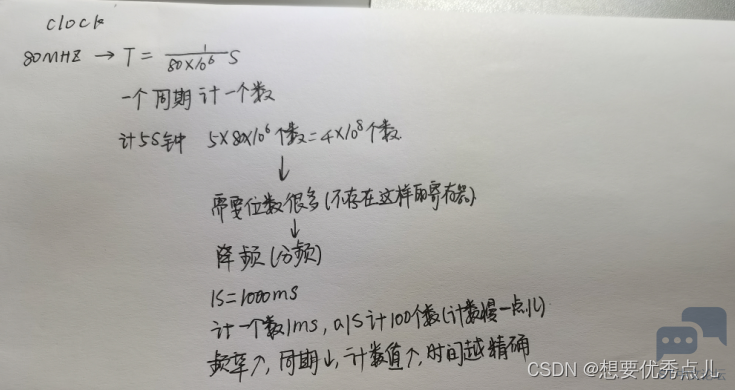 clock
80MHZ → T = 1/80×10⁶ S
一个周期计一个数
计5S钟 5×80×10⁶个数=4×10⁸个数
↓
需要位数很多(不存在这样的寄存器)
↓
降频(分频)
1S=1000ms
计一个数1ms,0.1S计100个数(计数慢一点儿)
频率↑,周期↓,计数值↑,时间越精确
CSDN @想要优秀点儿